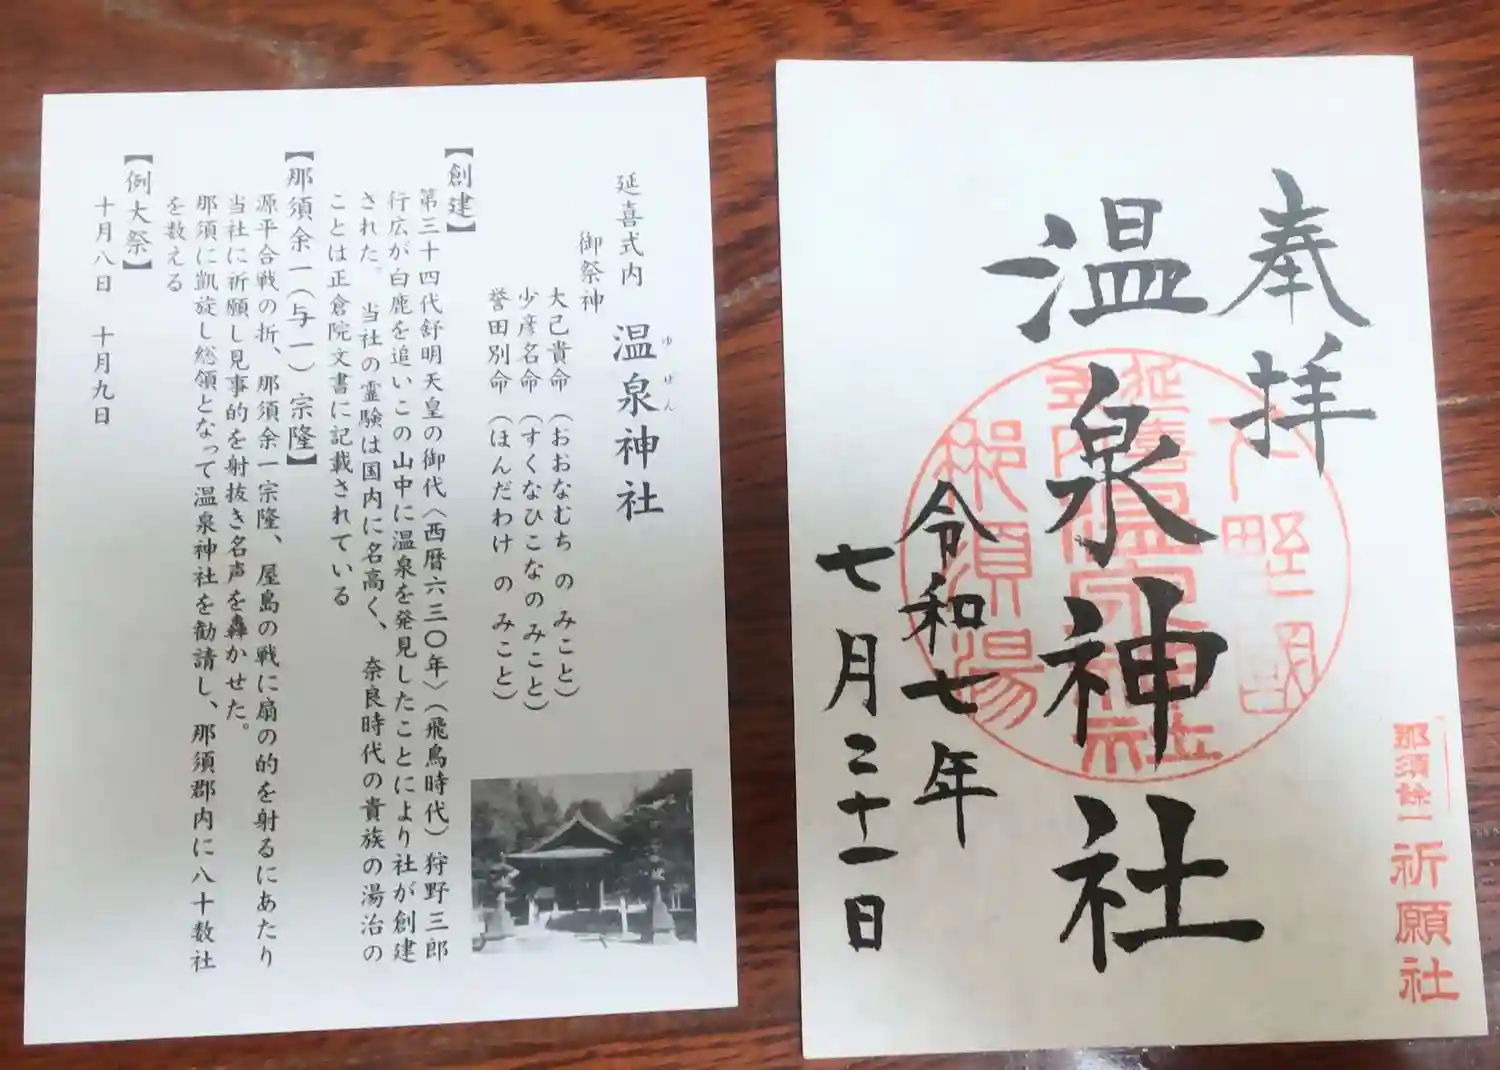 延喜式内 温泉神社
ゆぜん
御祭神
大己貴命（おおなむち の みこと）
少彦名命（すくなひこなのみこと）
誉田別命（ほんだわけ の みこと）
【創建】
第三十四代舒明天皇の御代〈西暦六三〇年〉（飛鳥時代）狩野三郎
行広が白鹿を追いこの山中に温泉を発見したことにより社が創建
された。当社の霊験は国内に名高く、奈良時代の貴族の湯治の
ことは正倉院文書に記載されている
【那須余一（与一）宗隆】
源平合戦の折、那須余一宗隆、屋島の戦に扇の的を射るにあたり
当社に祈願し見事的を射抜き名声を轟かせた。
那須に凱旋し総領となって温泉神社を勧請し、那須郡内に八十数社
を数える
【例大祭】
十月八日 十月九日
奉拝
温泉神社
令和七年
七月二十一日
下野国
延喜式内温泉神社
那須湯
那須餘一
祈願社